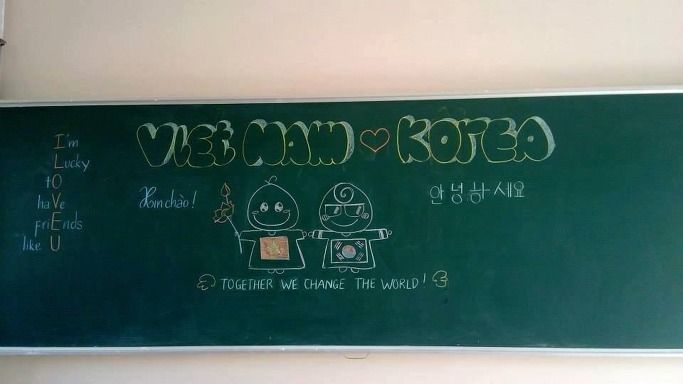 I'm
Lucky
to
haVe
friEnds
like U
VIET NAM ♡ KOREA
Xin chào!
안녕하세요
TOGETHER WE CHANGE THE WORLD!